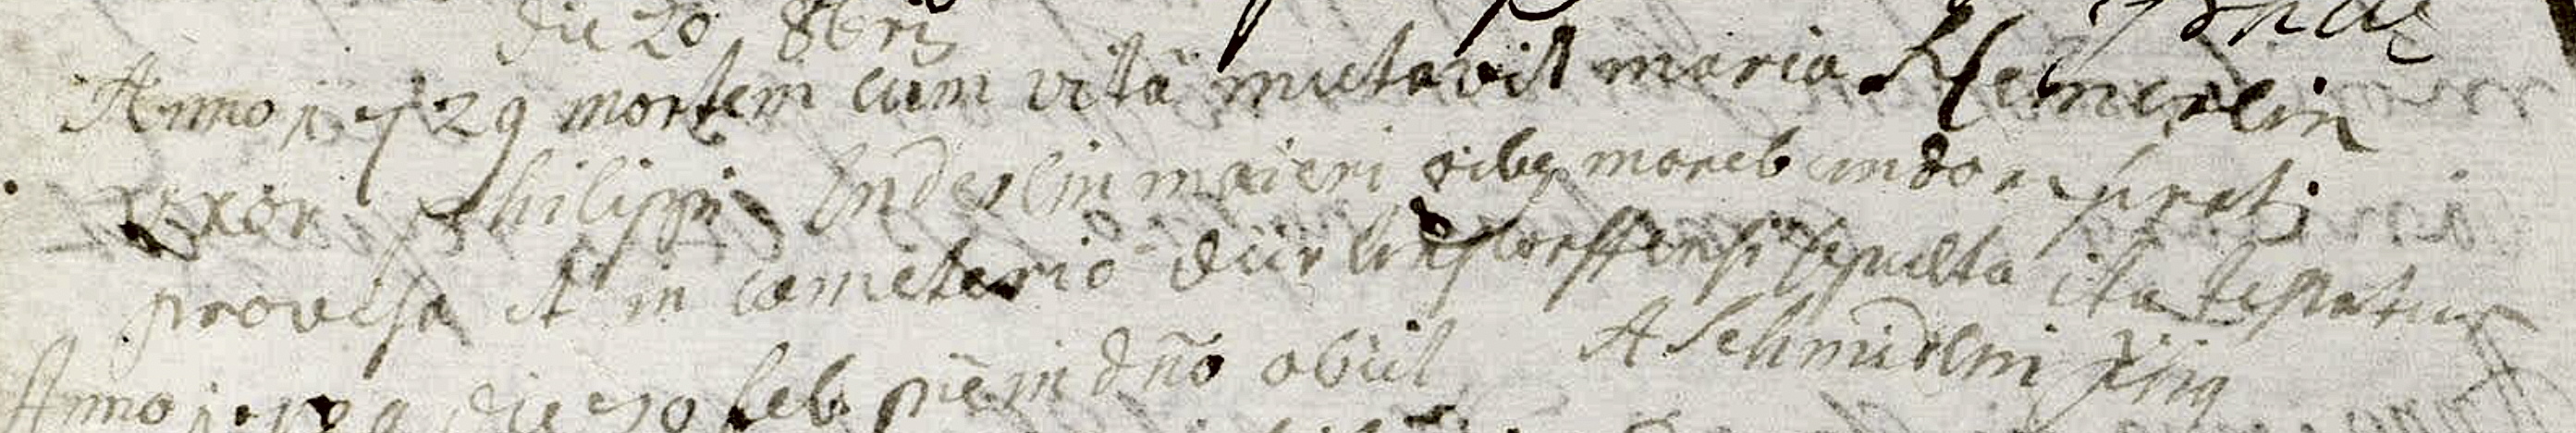 die 20 8bris
Anno 1729 mortem cum vitâ mutavit maria Hemerlin
uxor philippi Enderlin maieri ribg moreb undo a prati
provisa et in cœmeterio dürlinstorffensi sepulta ita testatur
A Schmidlin
Anno die 10 feb piè in dño obiit